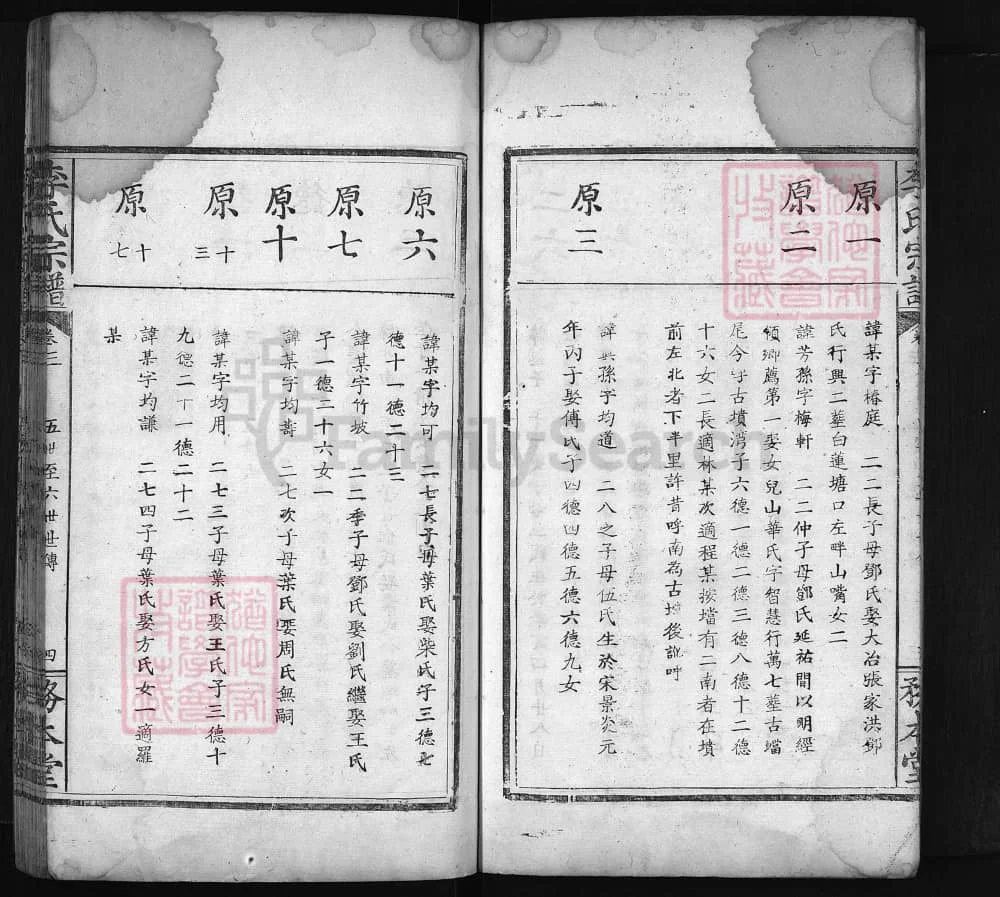 李氏宗譜
務本堂
原一
諱某字椿庭 二二長子母鄧氏娶大冶張家洪鄧
氏行興二墓白蓮塘口左畔山嘴女二
原二
諱芳孫字梅軒 二二仲子母鄧氏延祐間以明經
領鄉薦第一娶女兒山華氏字智慧行萬七墓古壋
尾今呼古墳灣子六德一德二德三德八德十二德
十六女二長適林某次適程某按壋有二南者在墳
前左北者下半里許昔呼南為古壋後訛呼
原三
諱 孫字均道 二八之子母伍氏生於宋景炎元
年丙子娶傅氏子四德四德五德六德九女
原六
諱某字均可 二七長子母葉氏娶柴氏子三德七
德十一德二十三
原七
諱某字竹坡 二二季子母鄧氏娶劉氏繼娶王氏
子一德三十六女一
原十
諱某字均壽 二七次子母葉氏娶周氏無嗣
原十三
諱某字均用 二七三子母葉氏娶王氏子三德十
九德二十一德二十二
原十七
諱某字均謙 二七四子母葉氏娶方氏女一適羅
某
李氏宗譜
卷二
五世至六世世傳
四
務本堂
FamilySearch